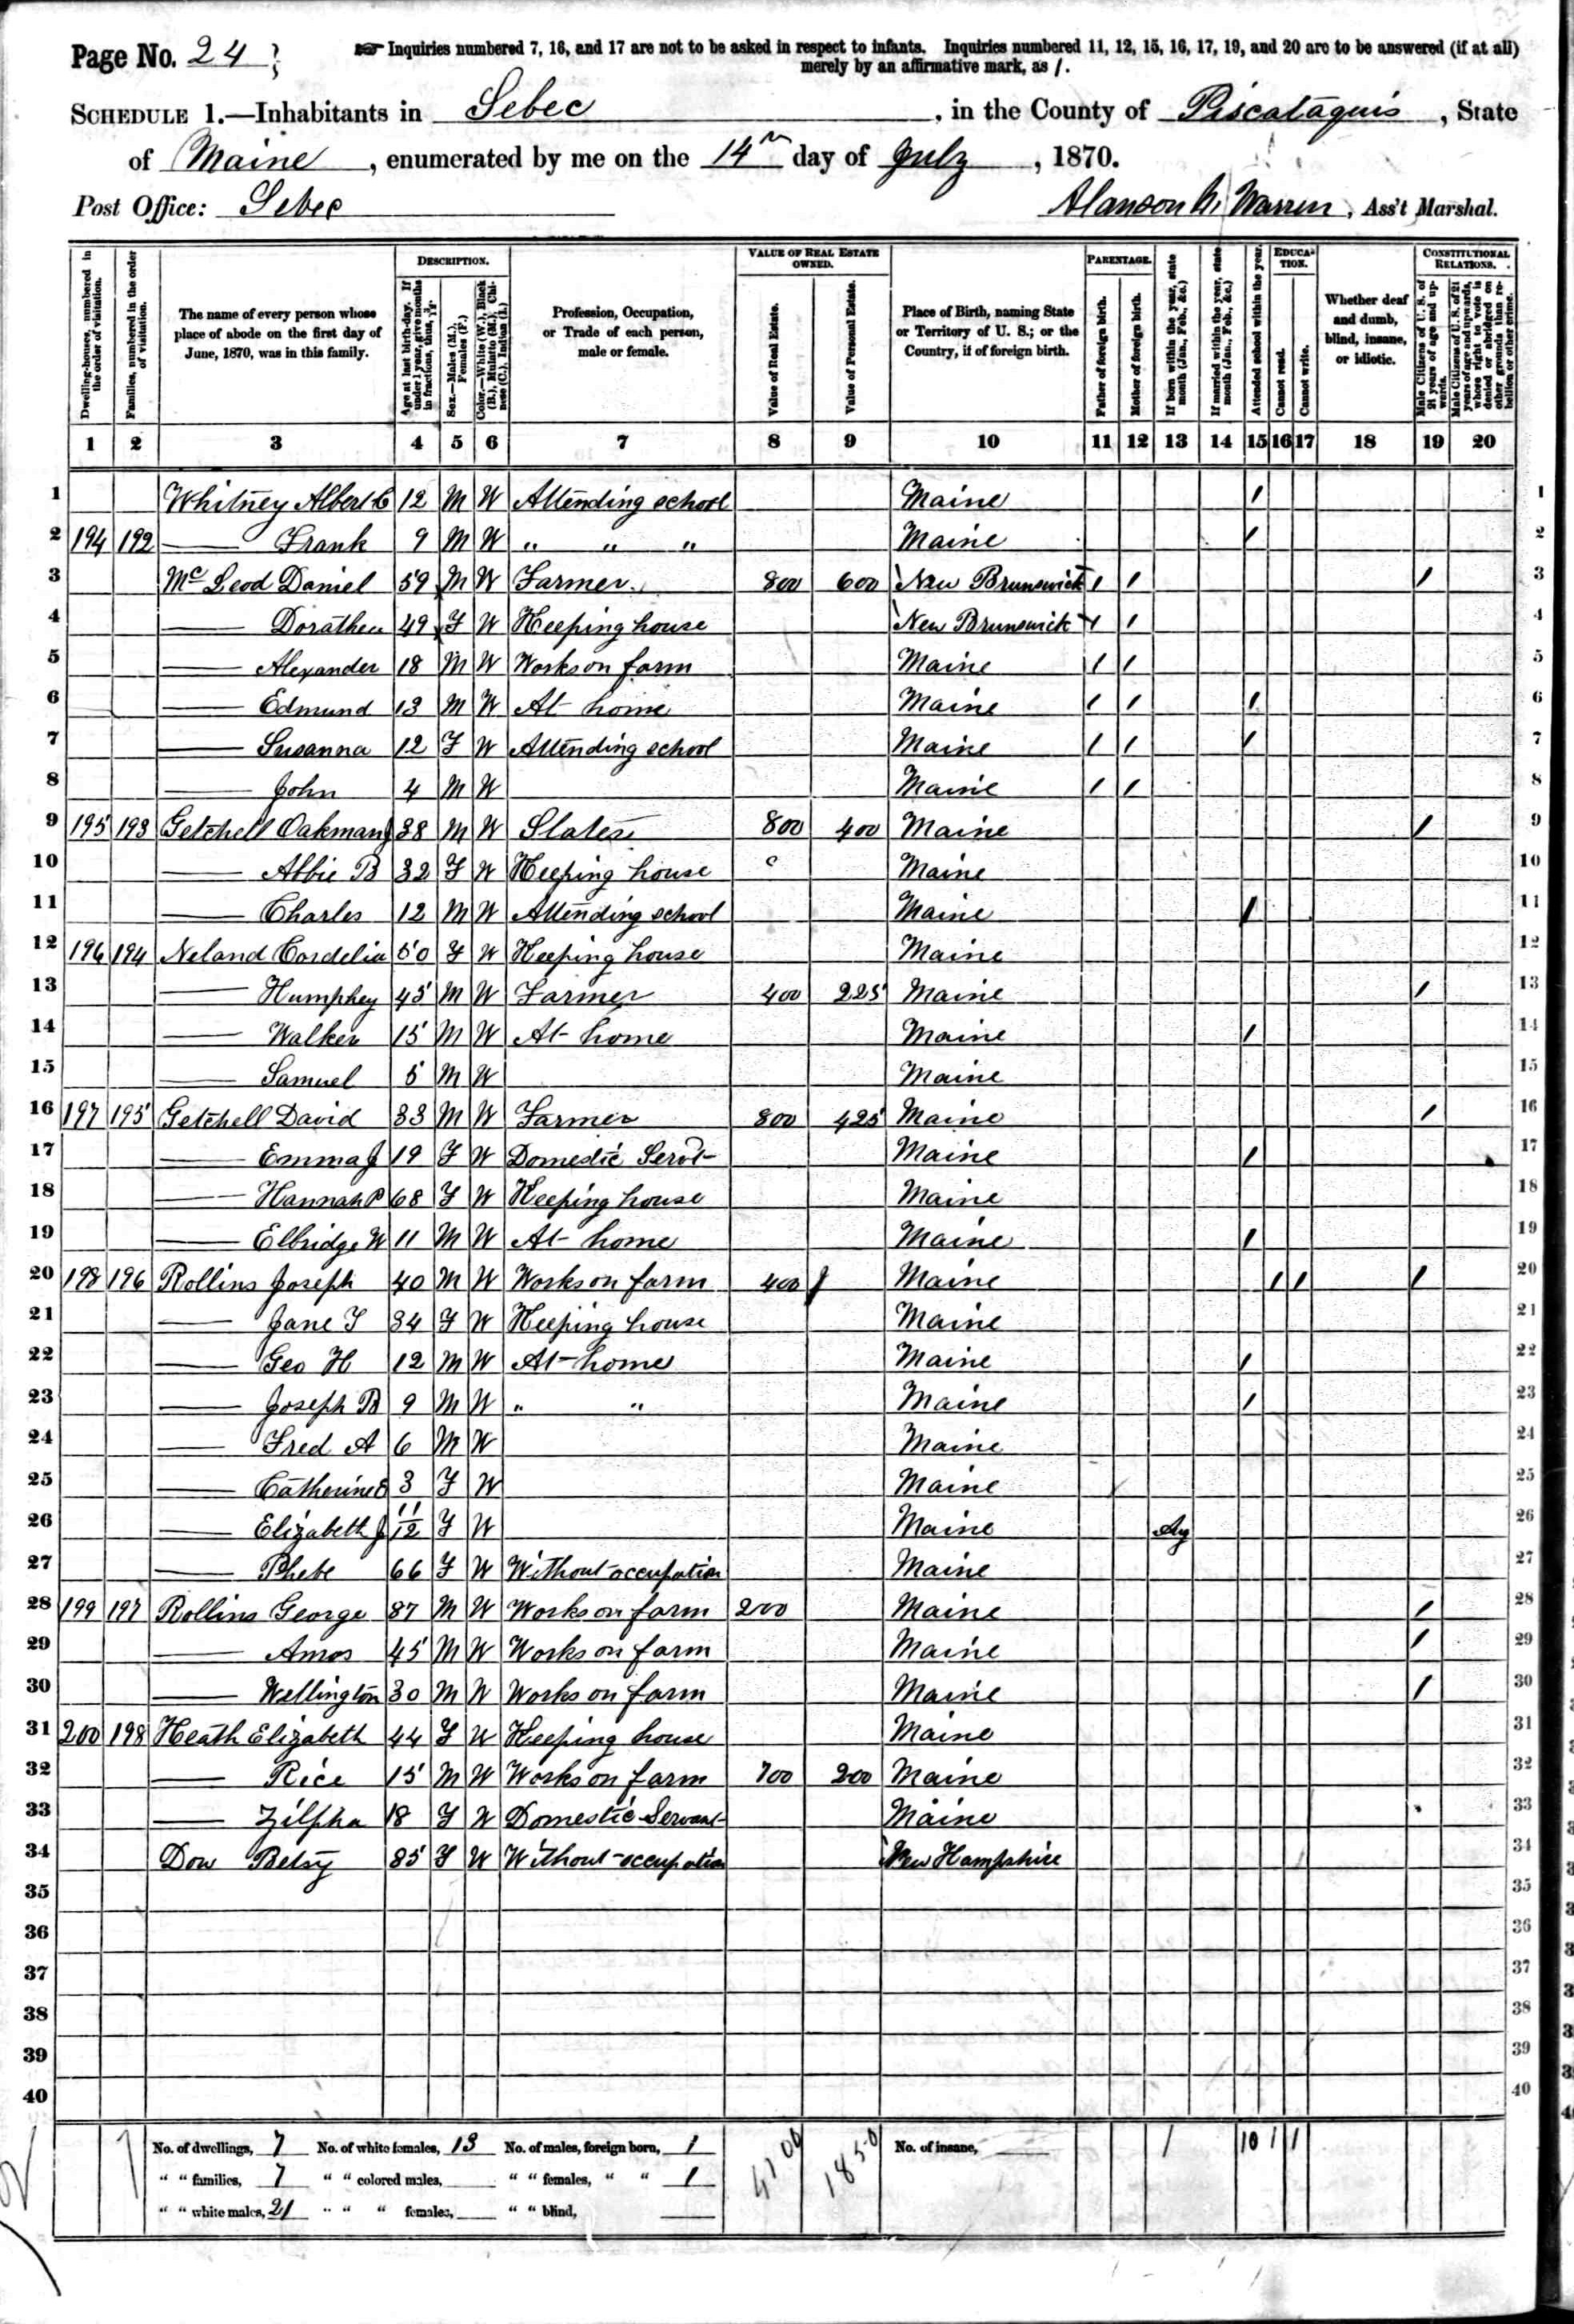 Page No. 24
☞ Inquiries numbered 7, 16, and 17 are not to be asked in respect to infants. Inquiries numbered 11, 12, 15, 16, 17, 19, and 20 are to be answered (if at all)
merely by an affirmative mark, as /.
SCHEDULE 1.—Inhabitants in Sebec, in the County of Piscataquis, State
of Maine, enumerated by me on the 14th day of July, 1870.
Post Office: Sebec
Alanson M. Warren, Ass't Marshal.
Dwelling-houses, numbered in the order of visitation.
Families, numbered in the order of visitation.
The name of every person whose place of abode on the first day of June, 1870, was in this family.
DESCRIPTION.
Age at last birth-day. If under 1 year, give months in fractions, thus, 3/12
Sex.—Males (M.), Females (F.)
Color.—White (W.), Black (B.), Mulatto (M.), Chinese (C.), Indian (I.)
Profession, Occupation, or Trade of each person, male or female.
VALUE OF REAL ESTATE OWNED.
Value of Real Estate.
Value of Personal Estate.
Place of Birth, naming State or Territory of U. S.; or the Country, if of foreign birth.
PARENTAGE.
Father of foreign birth.
Mother of foreign birth.
If born within the year, state month (Jan., Feb., &c.)
If married within the year, state month (Jan., Feb., &c.)
Attended school within the year.
EDUCATION.
Cannot read.
Cannot write.
Whether deaf and dumb, blind, insane, or idiotic.
CONSTITUTIONAL RELATIONS.
Male Citizens of U. S. of 21 years of age and upwards.
Male Citizens of U. S. of 21 years of age and upwards, whose right to vote is denied or abridged on other grounds than rebellion or other crime.
1 2 3 4 5 6 7 8 9 10 11 12 13 14 15 16 17 18 19 20
1 Whitney Albert C 12 M W Attending school Maine / 1
2 194 192 — Frank 9 M W " " " Maine / 2
3 McLeod Daniel 59 M W Farmer 800 600 New Brunswick / / / 3
4 — Dorathea 49 F W Keeping house New Brunswick / / 4
5 — Alexander 18 M W Works on farm Maine / / 5
6 — Edmund 13 M W At home Maine / / / 6
7 — Susanna 12 F W Attending school Maine / / / 7
8 — John 4 M W Maine / / 8
9 195 193 Getchell Oakman J 38 M W Slater 800 400 Maine / 9
10 — Abbie B 32 F W Keeping house Maine 10
11 — Charles 12 M W Attending school Maine / 11
12 196 194 Neland Cordelia 50 F W Keeping house Maine 12
13 — Humphey 45 M W Farmer 400 225 Maine / 13
14 — Walker 15 M W At home Maine / 14
15 — Samuel 5 M W Maine 15
16 197 195 Getchell David 33 M W Farmer 800 425 Maine / 16
17 — Emma J 19 F W Domestic Servt Maine / 17
18 — Hannah P 68 F W Keeping house Maine 18
19 — Elbridge W 11 M W At home Maine / 19
20 198 196 Rollins Joseph 40 M W Works on farm 400 Maine / / / 20
21 — Jane T 34 F W Keeping house Maine 21
22 — Geo H 12 M W At home Maine / 22
23 — Joseph B 9 M W " " Maine / 23
24 — Fred A 6 M W Maine 24
25 — Catherine E 3 F W Maine 25
26 — Elizabeth J 11/12 F W Maine Aug 26
27 — Phebe 66 F W Without occupation Maine 27
28 199 197 Rollins George 87 M W Works on farm 200 Maine / 28
29 — Amos 45 M W Works on farm Maine / 29
30 — Wellington 30 M W Works on farm Maine / 30
31 200 198 Heath Elizabeth 44 F W Keeping house Maine 31
32 — Rice 15 M W Works on farm 700 200 Maine 32
33 — Zilpha 18 F W Domestic Servant Maine 33
34 Dow Betsy 85 F W Without occupation New Hampshire 34
35 35
36 36
37 37
38 38
39 39
40 40
No. of dwellings, 7 No. of white females, 13 No. of males, foreign born, 1 4100 1850 No. of insane, 1 10 1 1
" " families, 7 " " colored males, " " females, " " 1
" " white males, 21 " " " females, " " blind,